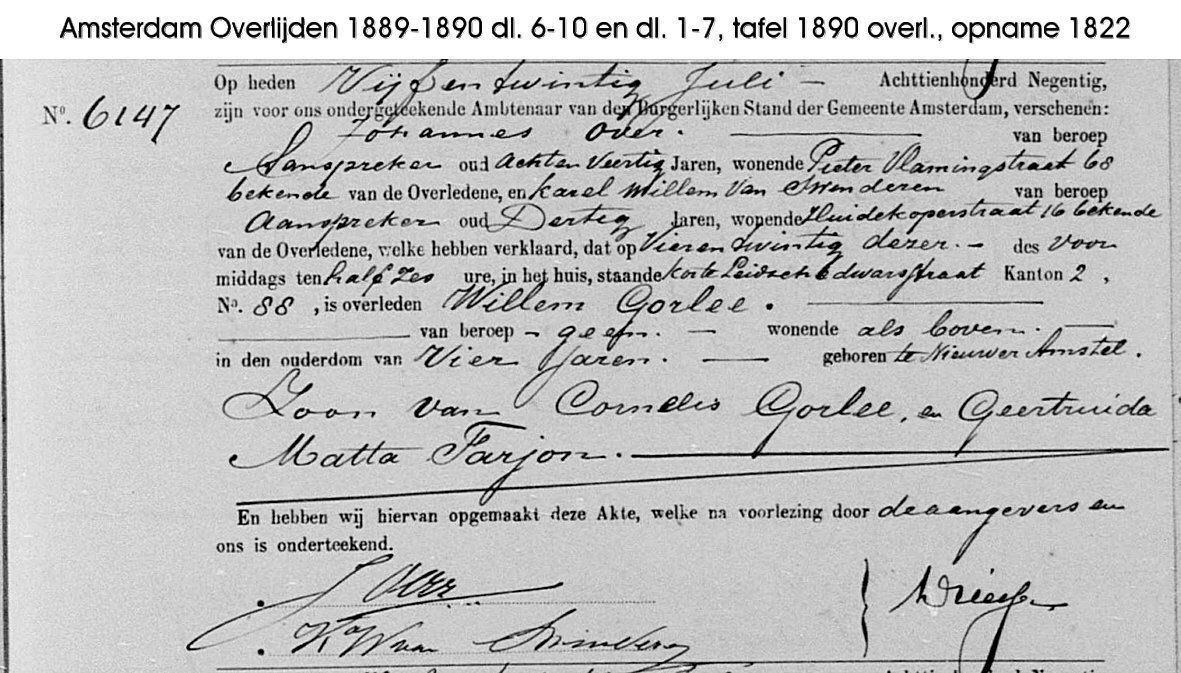 Amsterdam Overlijden 1889-1890 dl. 6-10 en dl. 1-7, tafel 1890 overl., opname 1822
Op heden Vijfentwintig Juli – Achttienhonderd Negentig,
No. 6147 zijn voor ons ondergeteekende Ambtenaar van den Burgerlijken Stand der Gemeente Amsterdam, verschenen:
Johannes Over. van beroep
Aanspreker oud Achtenveertig Jaren, wonende Pieter Vlamingstraat 68
bekende van de Overledene, en Karel Willem Van Swenderen van beroep
Aanspreker oud Dertig Jaren, wonende Huidekoperstraat 16 bekende
van de Overledene, welke hebben verklaard, dat op Vierentwintig dezer. – des Voor
middags ten half Zes ure, in het huis, staande Korte Leidschedwarsstraat Kanton 2,
No. 88, is overleden Willem Gorlee.
van beroep – geen. – wonende als boven. –
in den ouderdom van Vier Jaren. – geboren te Nieuwer Amstel.
Zoon van Cornelis Gorlee, en Geertruida
Matta Farjon.
En hebben wij hiervan opgemaakt deze Akte, welke na voorlezing door de aangevers en
ons is onderteekend.
J Over
K W van